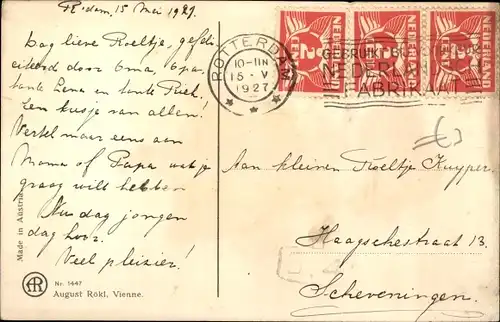 R.dam, 15 Mei 1927.
Dag lieve Roeltje, gefeli
citeerd door Oma, Opa,
tante Lena en tante Riek.
Een kusje van allen!
Vertel maar eens aan
Mama of Papa wat je
graag wilt hebben
Nu dag jongen
dag hoor.
Veel plezier!
ROTTERDAM
10-11N
15-V
1927
NEDERLAND
NEDERLAND
NEDERLAND
GEBRUIKT
NEDERL
FABRIKAAT
Aan kleinen Roeltje Kuyper
Haagschestraat 13.
Scheveningen.
Made in Austria
Nr. 1447
August Rökl, Vienne.